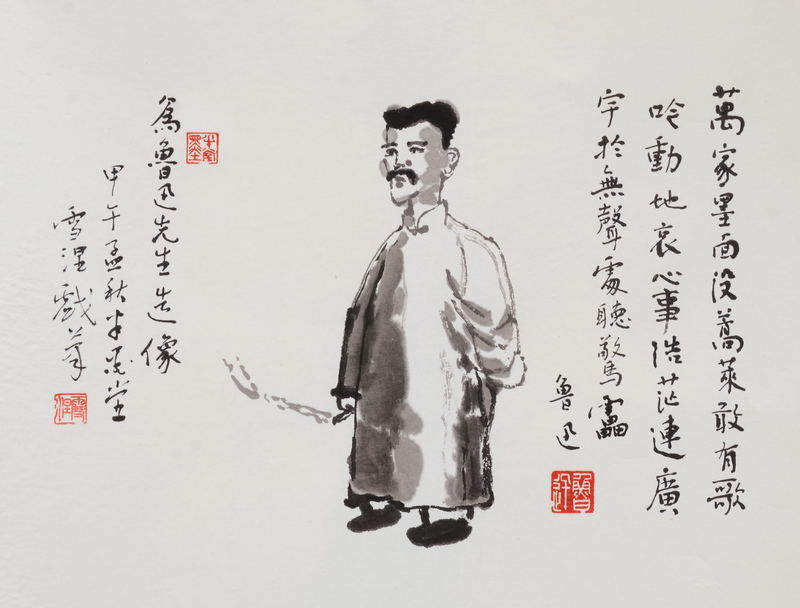 萬家墨面没蒿萊敢有歌
吟動地哀心事浩茫連廣
宇於無聲處聽驚靁
魯迅
魯迅
為魯迅先生造像
甲午孟秋半堂
雪涅戲筆
雪涅